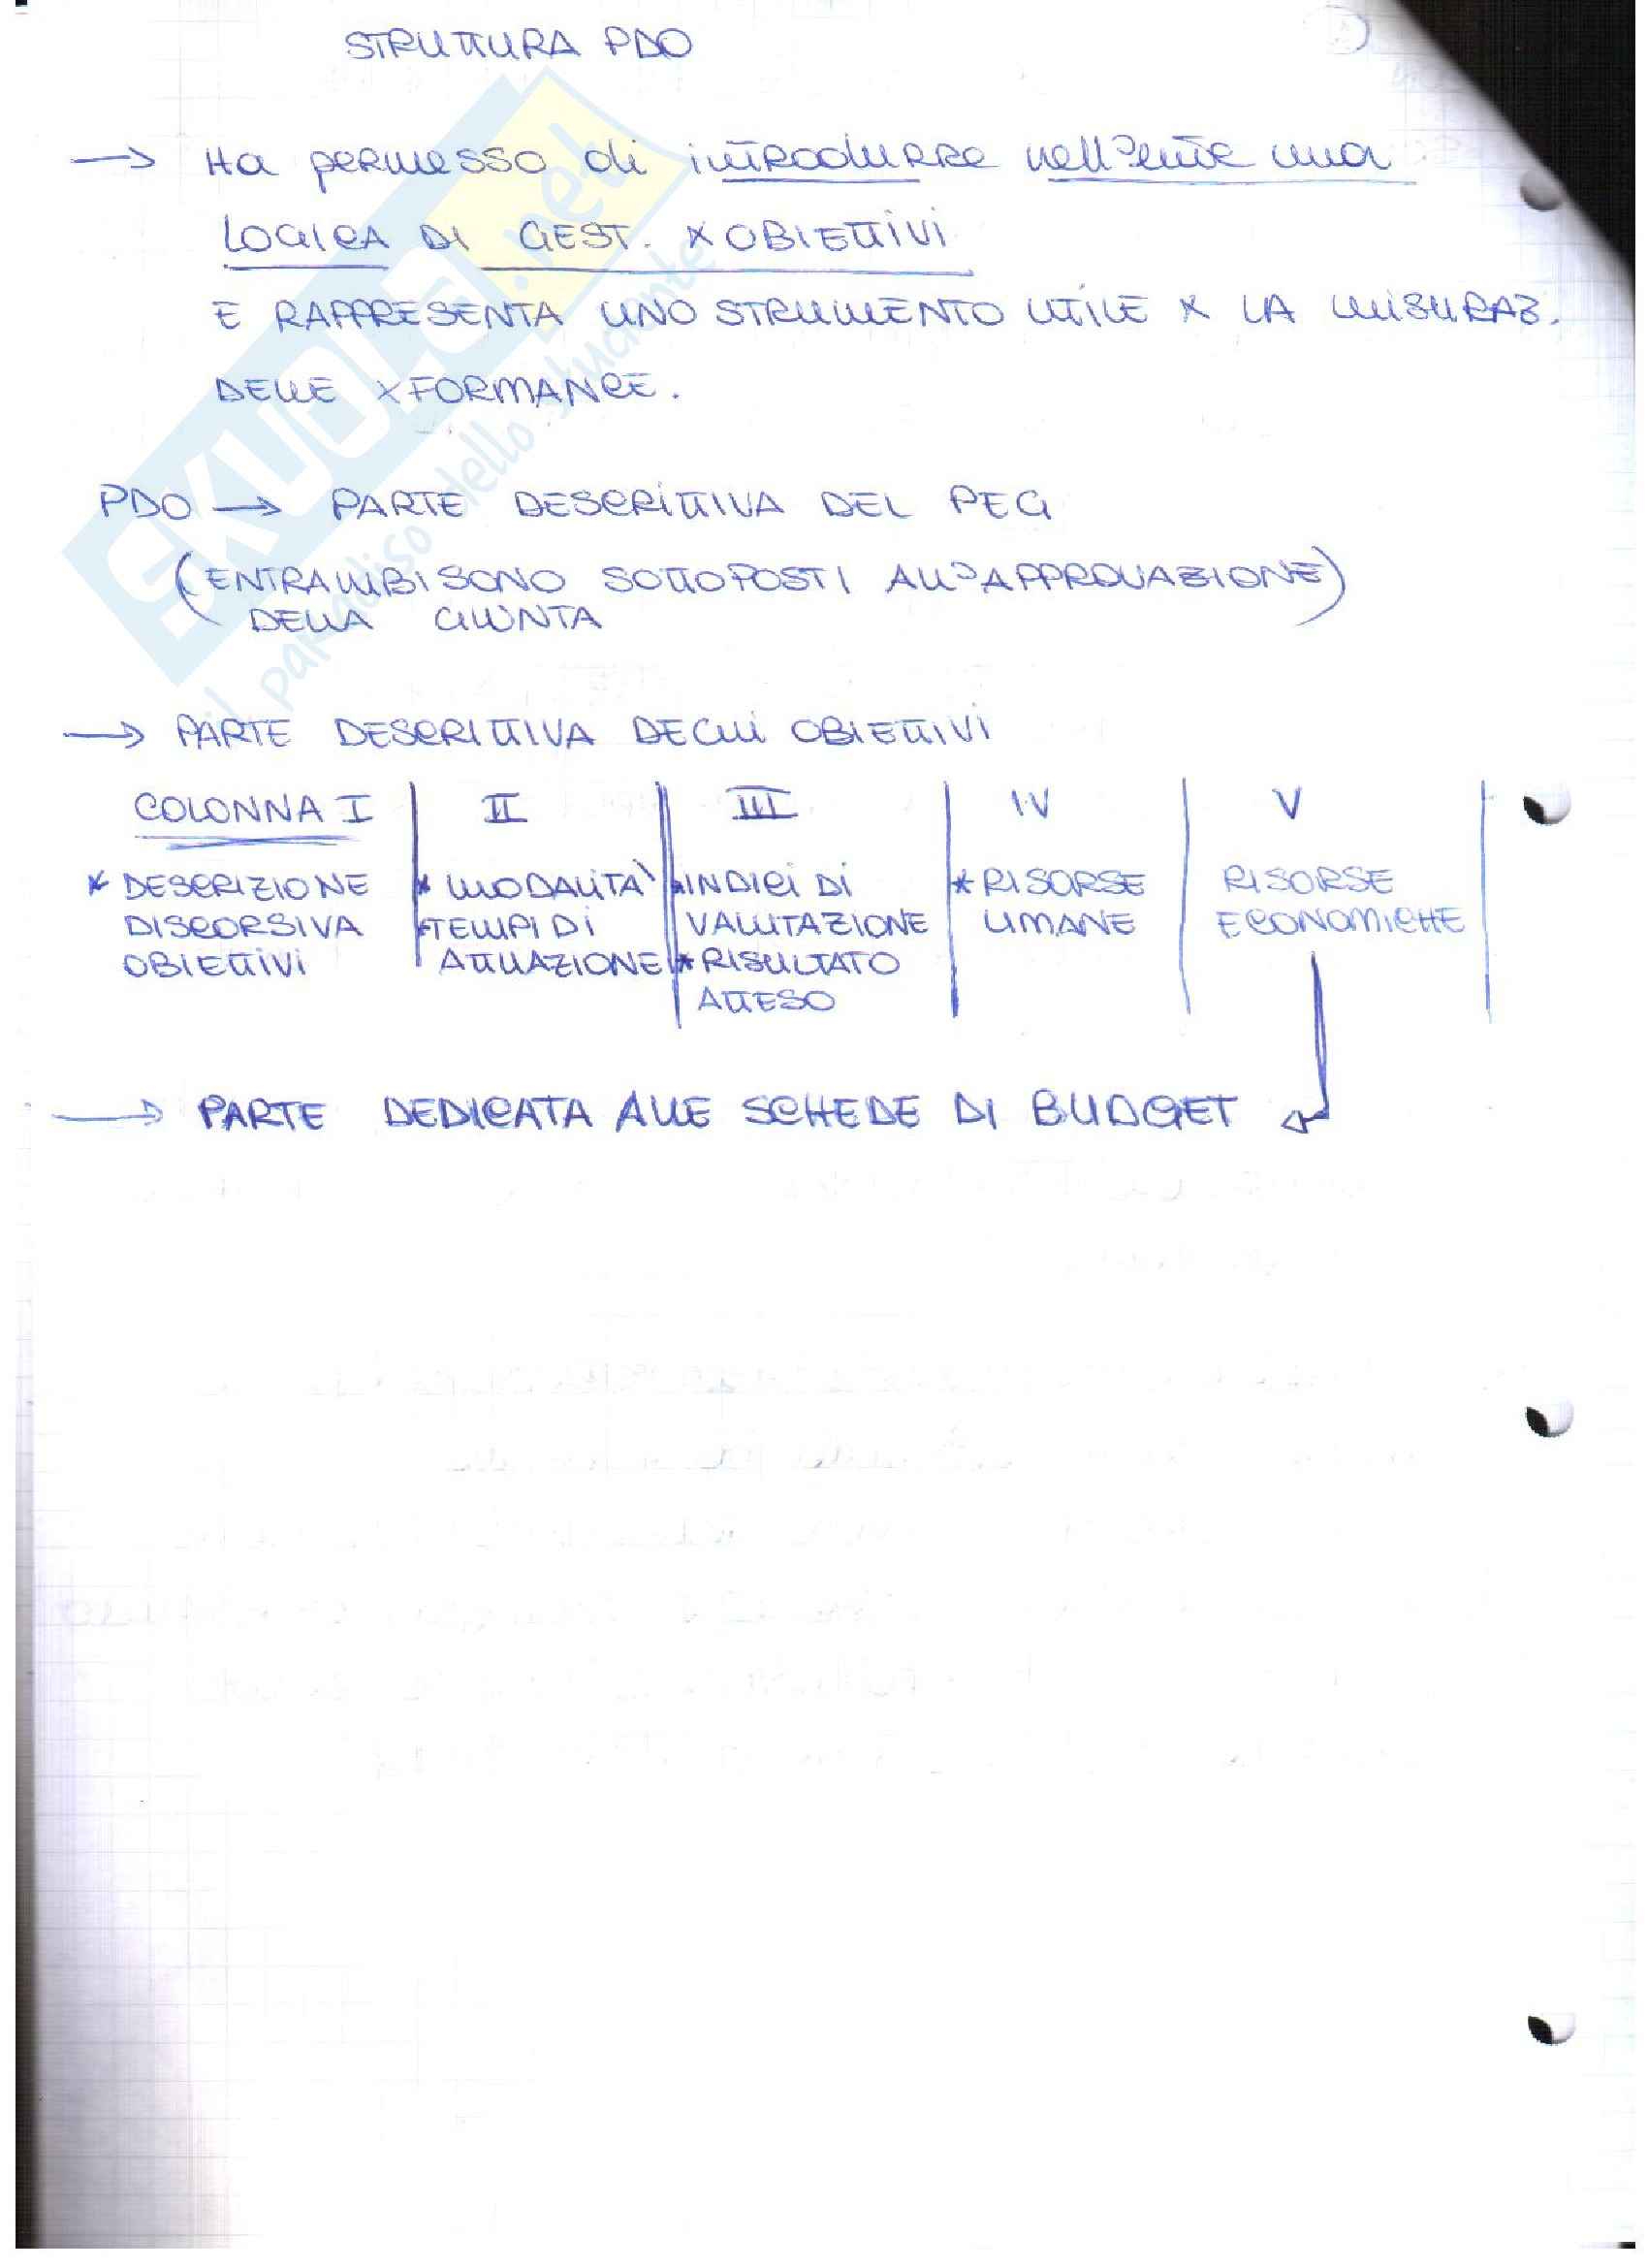 STRUTTURA PDO
→ Ha permesso di introdurre nell'ente una
LOGICA DI GEST. X OBIETTIVI
E RAPPRESENTA UNO STRUMENTO UTILE X LA MISURAZ.
DELLE XFORMANCE.
PDO → PARTE DESCRITTIVA DEL PEG
(ENTRAMBI SONO SOTTOPOSTI ALL'APPROVAZIONE)
DELLA GIUNTA
→ PARTE DESCRITTIVA DEGLI OBIETTIVI
COLONNA I | II | III | IV | V |
* DESCRIZIONE | * MODALITÀ | * INDICI DI | * RISORSE | RISORSE
DISCORSIVA | * TEMPI DI | VALUTAZIONE | UMANE | ECONOMICHE
OBIETTIVI | ATTUAZIONE | * RISULTATO
ATTESO
→ PARTE DEDICATA ALLE SCHEDE DI BUDGET
SKUOLA.net
il paradiso dello studente